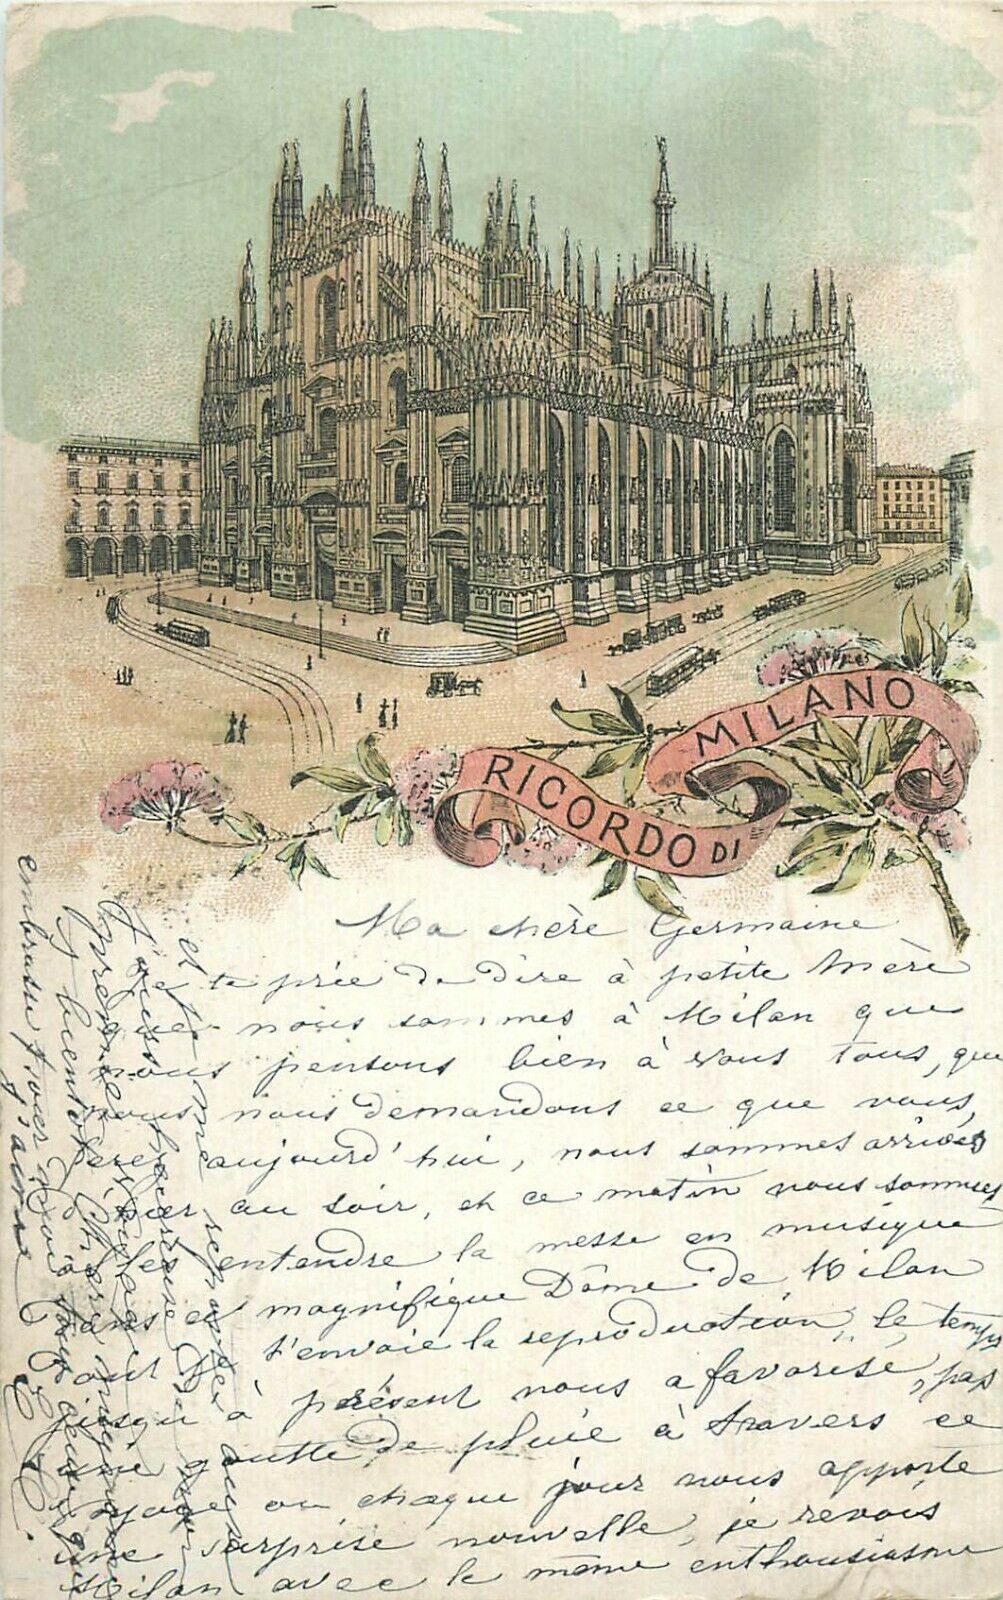 MILANO
RICORDO DI
Ma chère Germaine
Je te prie de dire à petite Mère
que nous sommes à Milan que
nous pensons bien à vous tous, que
nous nous demandons ce que vous
aujourd'hui, nous sommes arrivés
hier au soir, et ce matin nous sommes
entendre la messe en musique
dans ce magnifique Dôme de Milan
dont je t'envoie la reproduction, le temps
jusqu'à présent nous a favorisé, pas
une goutte de pluie à travers ce
voyage ou chaque jour nous apporte
une surprise nouvelle, je revois
Milan avec le même enthousiasme
et
heureuse de
bientôt Chère
embrasse pour moi tous ceux que
j'aime